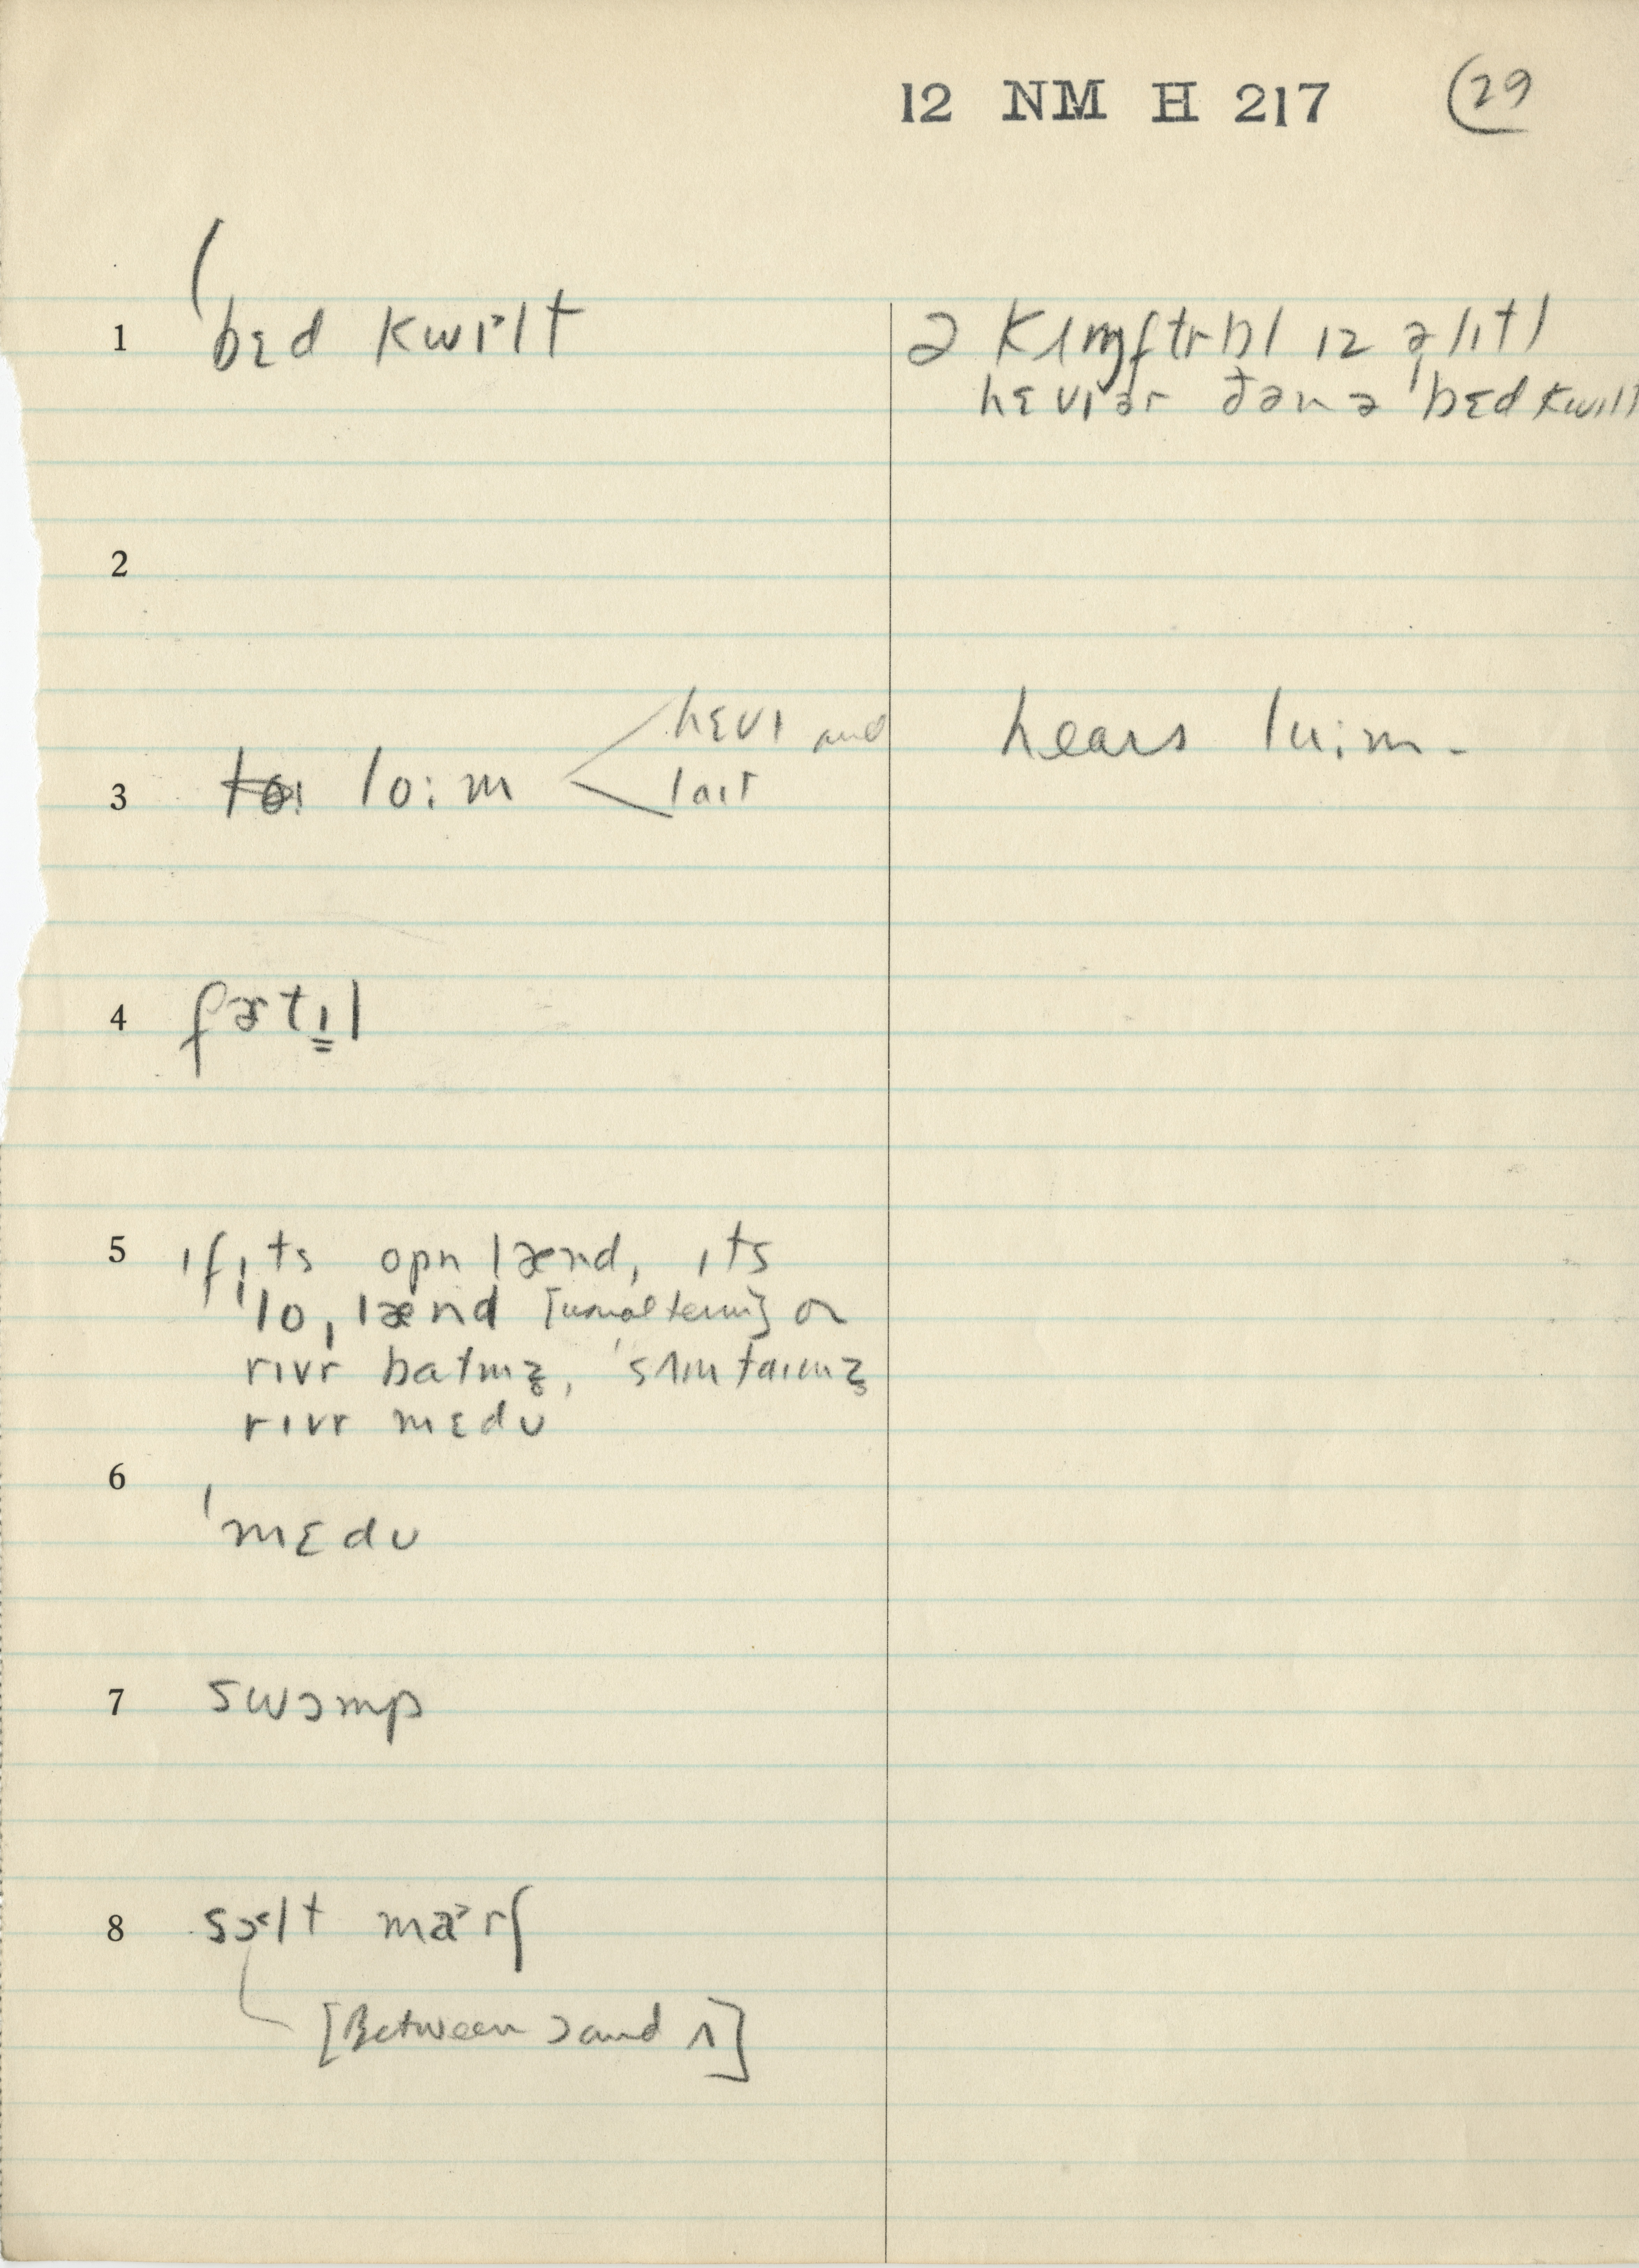 12 NM H 217 29
1 bɛd kwɪ˃lt
ə kʌmftrbl ɪz ə lɪtl
hɛvɪər ðən ə ˈbɛd kwɪlt
2
hɛvɪ and hears lu:m -
3 lo:m
laɪt
4 fɝtɪl
5 ɪf ɪts opn lænd, ɪts
ˈloˌlænd [usual term] or
rɪvr batmz̥, ˈsʌmtaɪmz̥
rɪvr mɛdʊ
6
ˈmɛdʊ
7 swɔmp
8 sɔ˂lt ma˃rʃ
[Between ɔ and ʌ]